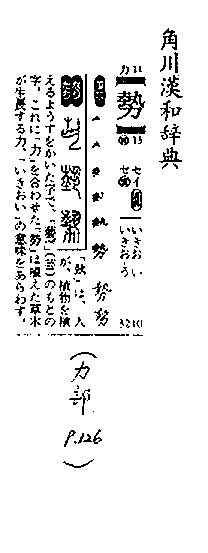 角川漢和辞典
力 11
勢
13
セイ
セ
いきおい
いきおう
3210
勢
「埶」は、人
が、植物を植
えるようすをかいた字で、「藝」(芸)のもとの
字。これに「力」を合わせた「勢」は植えた草木
が生長する力、「いきおい」の意味をあらわす。
(力部
P.126)